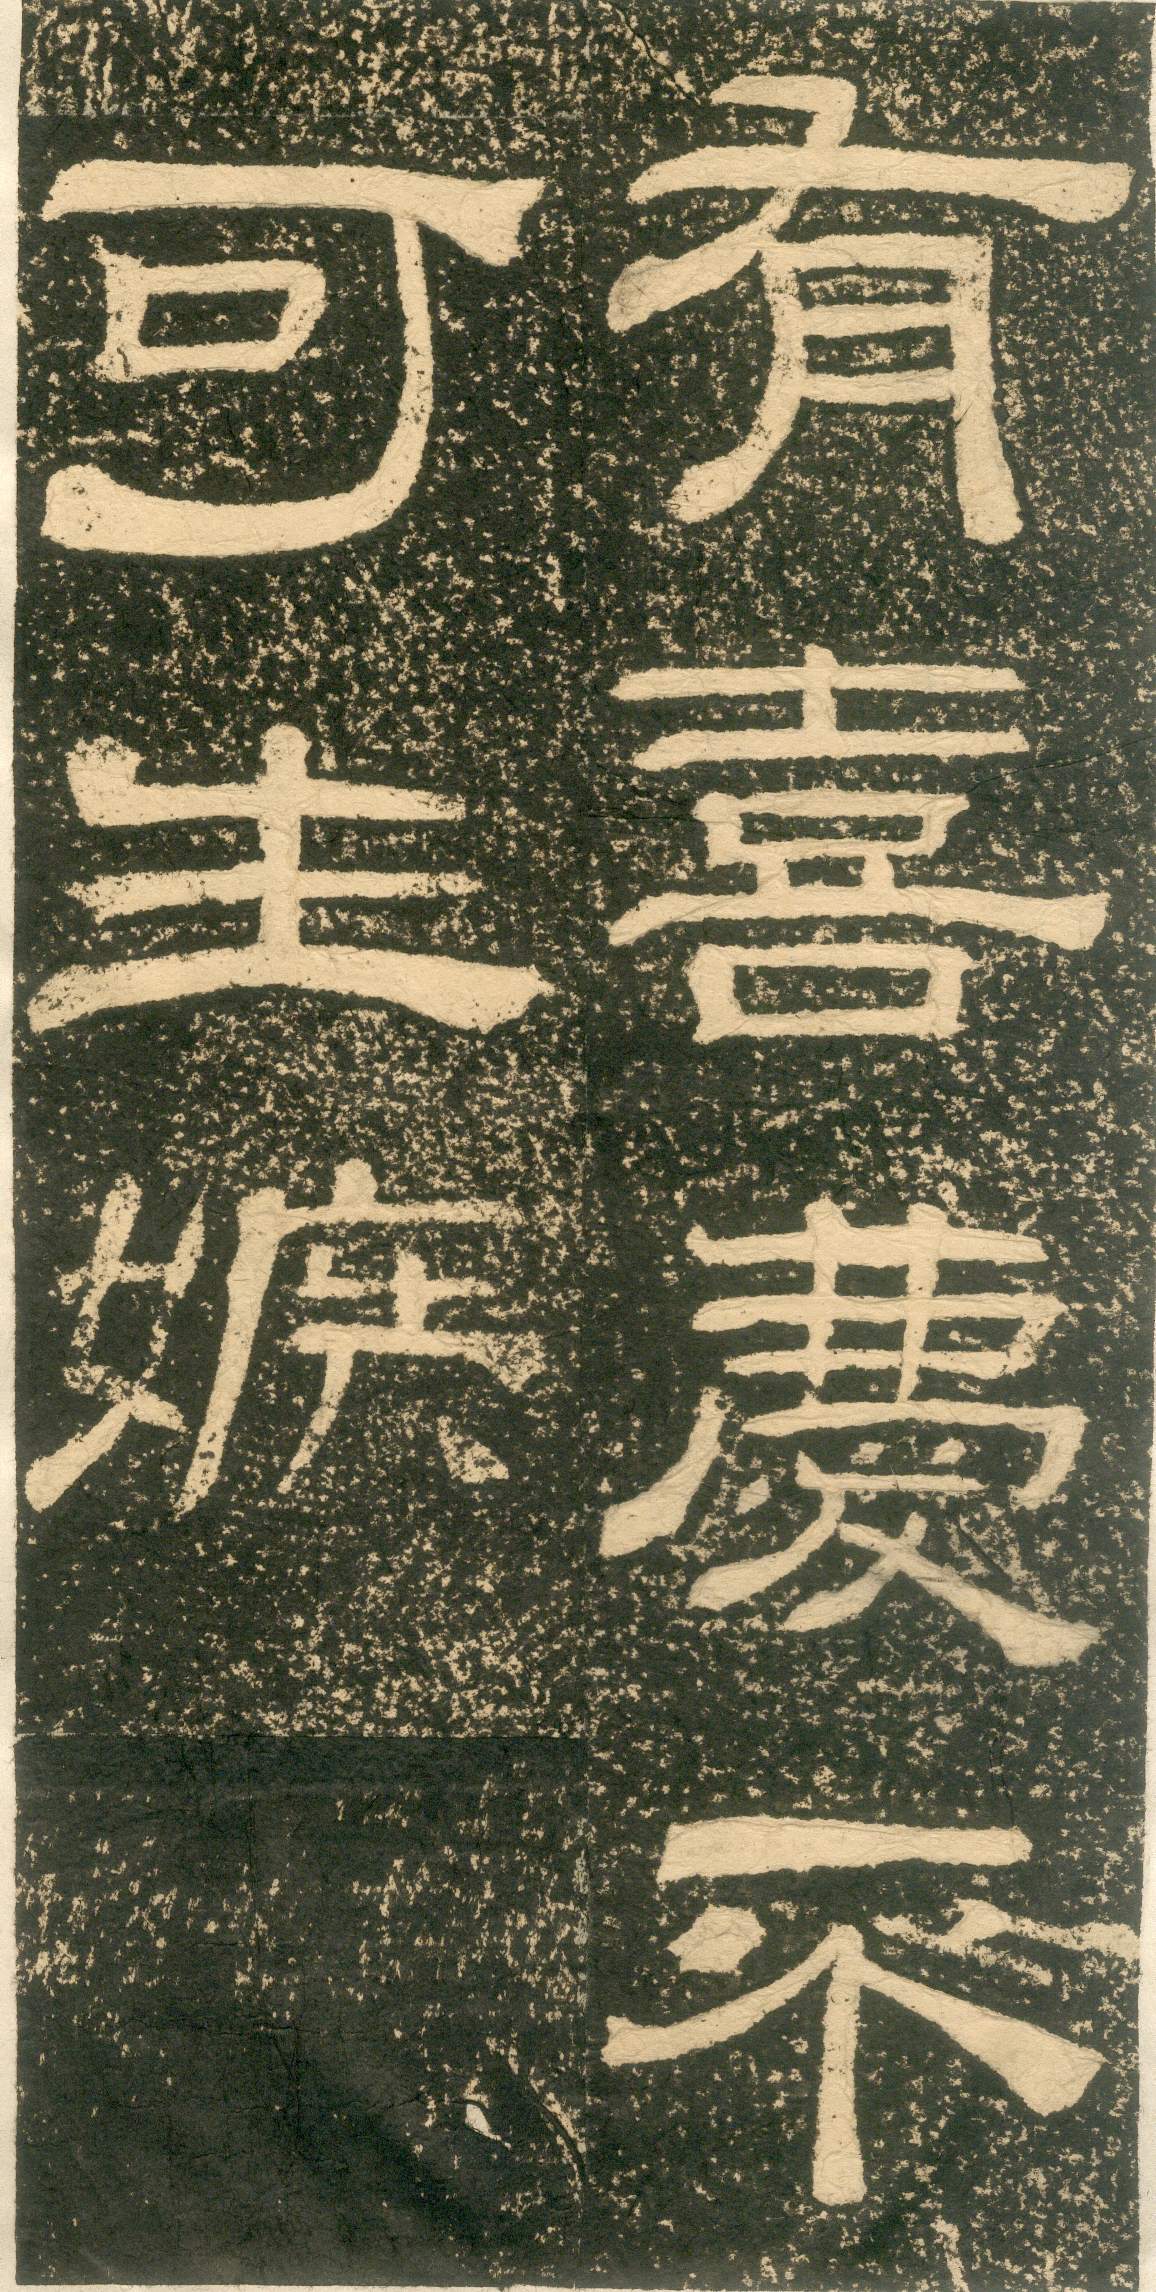 有喜慶不
可生嫉